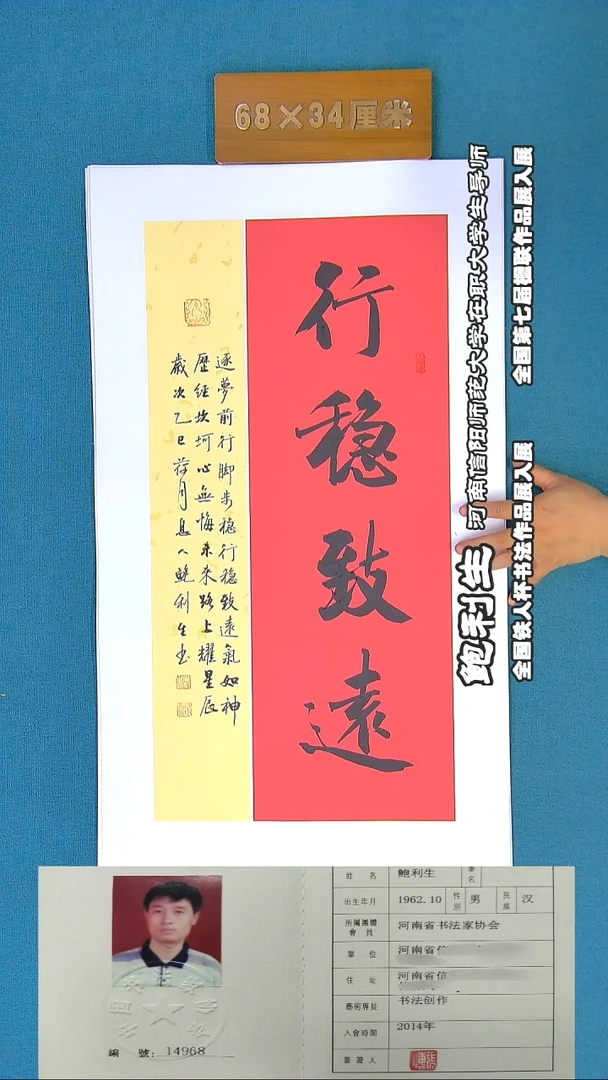 68×34厘米
行稳致遠
逐夢前行脚步稳行稳致遠氣如神
歷经坎坷心無悔未来路上耀星辰
歲次乙巳荷月
鲍利生
鲍利生
河南信阳师范大学在职大学生导师
全国第七届楹联作品展入展
全国铁人杯书法作品展入展
姓名 鲍利生 筆名
出生年月 1962.10 性别 男 民族 汉
所屬團體會員 河南省书法家协会
單位 河南省信
住址 河南省信
藝術專長 书法创作
入會時間 2014年
簽證人
編號:14968